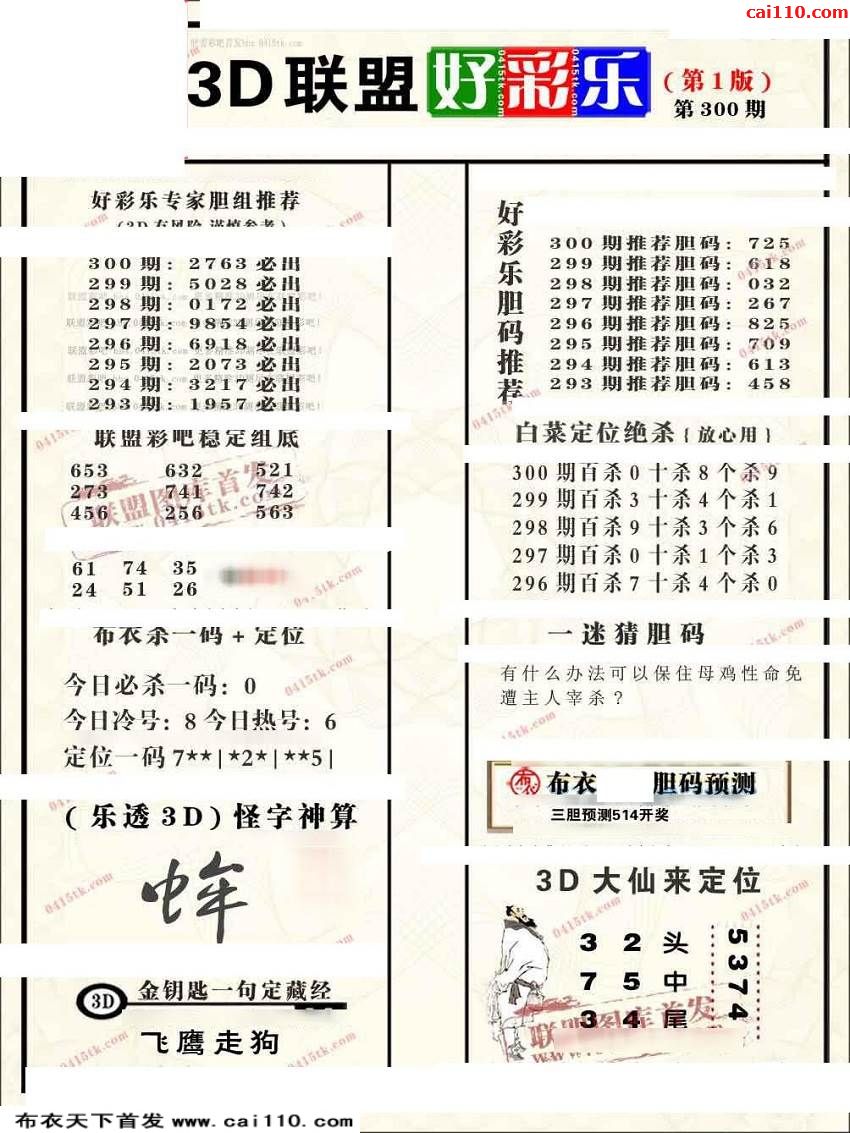 cai110.com
3D联盟好彩乐
(第1版)
第300期
好彩乐专家胆组推荐
(3D有风险 谨慎参考)
300期:2763必出
299期:5028必出
298期:0172必出
297期:9854必出
296期:6918必出
295期:2073必出
294期:3217必出
293期:1957必出
联盟彩吧稳定组底
653 632 521
273 741 742
456 256 563
联盟图库首发
0415tk.com
61 74 35
24 51 26
布衣杀一码+定位
今日必杀一码:0
今日冷号:8今日热号:6
定位一码7**|*2*|**5|
(乐透3D)怪字神算
3D
金钥匙一句定藏经
飞鹰走狗
好彩乐胆码推荐
300期推荐胆码:725
299期推荐胆码:618
298期推荐胆码:032
297期推荐胆码:267
296期推荐胆码:825
295期推荐胆码:709
294期推荐胆码:613
293期推荐胆码:458
白菜定位绝杀{放心用}
300期百杀0十杀8个杀9
299期百杀3十杀4个杀1
298期百杀9十杀3个杀6
297期百杀0十杀1个杀3
296期百杀7十杀4个杀0
一迷猜胆码
有什么办法可以保住母鸡性命免
遭主人宰杀?
布衣 胆码预测
三胆预测514开奖
3D大仙来定位
3 2头
7 5中
3 4尾
5374
联盟图库首发
布衣天下首发www.cai110.com